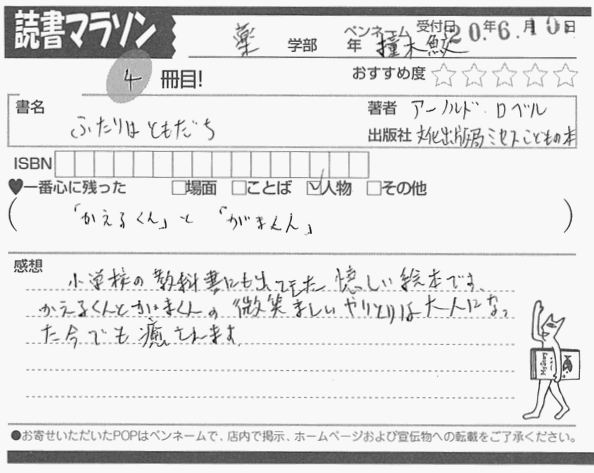 読書マラソン
薬 学部 年 ペンネーム 撞木鮫 受付日 20年6月10日
4 冊目! おすすめ度 ☆☆☆☆☆
書名 ふたりはともだち
著者 アーノルド・ロベル
出版社 文化出版局ミセスこどもの本
ISBN
♥一番心に残った □場面 □ことば ☑人物 □その他
(「かえるくん」と「がまくん」)
感想
小学校の教科書にも出てきた 懐しい絵本です。
かえるくんとがまくんの 微笑ましいやりとりは大人になっ
た今でも癒されます。
●お寄せいただいたPOPはペンネームで、店内で掲示、ホームページおよび宣伝物への転載をご了承ください。